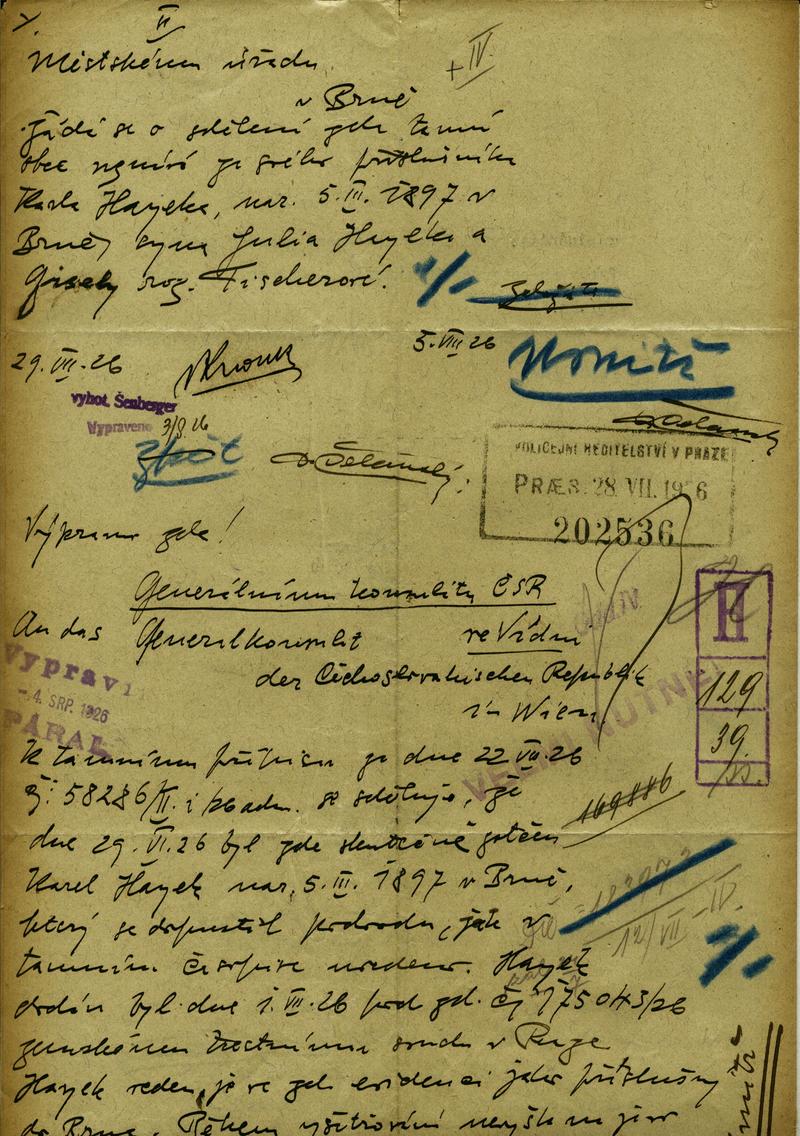 II
Městskému úřadu
+IV
v Brně
Žádá se o sdělení zda tamní
obec uznává za svého příslušníka
Karla Hayeka, nar. 5.III.1897 v
Brně, syna Julia Hayeka a
Gisely roz. Fischerové.
29.VII.26
5.VIII.26
vyhot. Šenberger
Vypraveno 3/8 26
Zpět
Dr Želánský
POLICEJNÍ ŘEDITELSTVÍ V PRAZE
PRÆS. 28. VII. 1926
202536
Výprava zde!
Generálnímu konsulátu ČSR
An das Generalkonsulat ve Vídni
der Čechoslovakischen Republik
in Wien
Vypravil
- 4. SRP. 1926
PÁRAL
VELMI NUTNÉ!
II
129
39
K tamnímu přípisu ze dne 22.VII.26
č. 58286/II. i/26 adm. se sděluje, že
169886
dne 29.VI.26 byl zde skutečně zatčen
Karel Hayek nar. 5.III.1897 v Brně,
který se dopustil podvodu, jak v
12/VII - IV.
tamním čísle uvedeno. Hayek
dodán byl dne 1.VII.26 pod zdl. čj 175043/26
zemskému trestnímu soudu v Praze
Hayek veden je ve zdl. evidenci jako příslušný
do Brna. Během vyšetřování nevyšlo na jevo